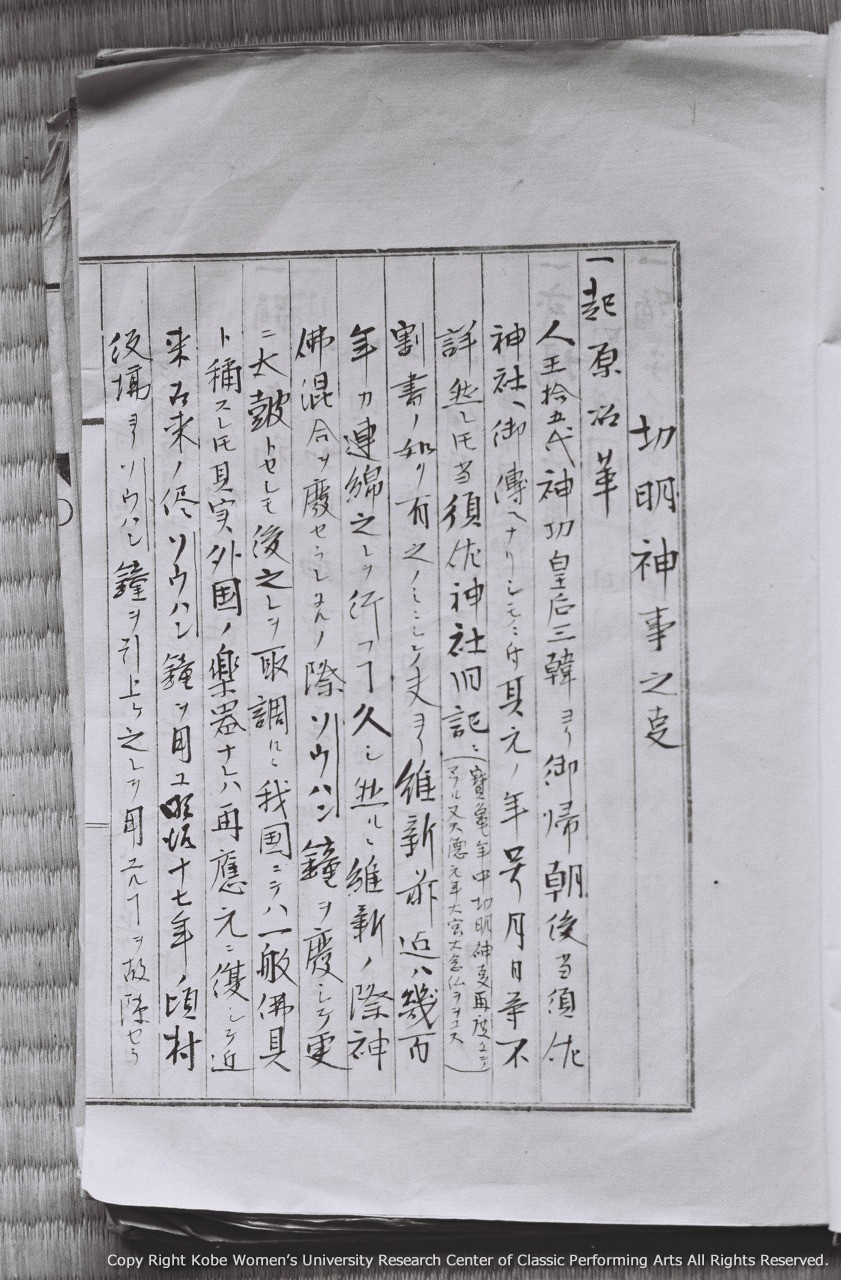 切明神事之㕝
一起原沿革
人王拾五代神功皇后三韓ヨリ御帰朝後当須佐
神社ヘ御傳ヘナリシモ其元ノ年号月日等不
詳然レ𪜈当須佐神社旧記ニ
(寶亀年中切明神㕝再度
又大徳元年大宮大念仏ヲ
割書ノ如ク有之ノミニシテ夫ヨリ維新前迄ハ幾百
年カ連綿之レヲ行フ久シ然ルニ維新ノ際神
佛混合ヲ廢セラレ際ソウハン鐘ヲ廢シテ更
ニ太鼓トセレ𪜈後之レヲ取調ルニ我国ニテハ一般佛具
ト稱スレ𪜈其実外国ノ楽器ナレハ再應元ニ復シテ近
来古来ノ侭ソウハン鐘ヲ用ユ明治十七年ノ頃村
役場ヨリソウハン鐘ヲ引上ケ之レヲ用ヲ故障セラ
Copy Right Kobe Women's University Research Center of Classic Performing Arts All Rights Reserved.